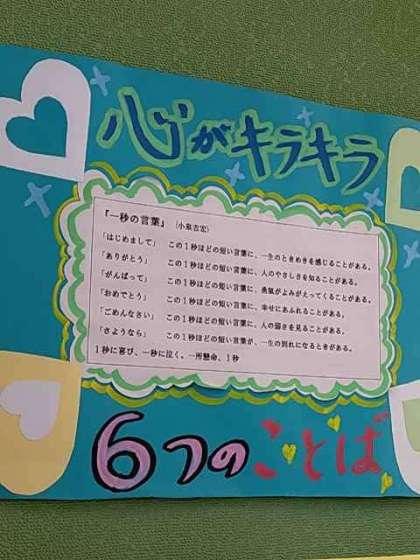 心がキラキラ
『一秒の言葉』 (小泉吉宏)
「はじめまして」 この1秒ほどの短い言葉に、一生のときめきを感じることがある。
「ありがとう」 この1秒ほどの短い言葉に、人のやさしさを知ることがある。
「がんばって」 この1秒ほどの短い言葉に、勇気がよみがえってくることがある。
「おめでとう」 この1秒ほどの短い言葉に、幸せにあふれることがある。
「ごめんなさい」 この1秒ほどの短い言葉に、人の弱さを見ることがある。
「さようなら」 この1秒ほどの短い言葉が、一生の別れになるときがある。
1秒に喜び、一秒に泣く。一所懸命、1秒
6つのことば